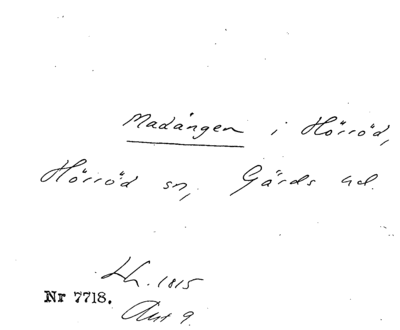 Madängen i Hörröd,
Hörröd sn, Gärds hd.
Lh. 1815
Nr 7718.
Akt 9.